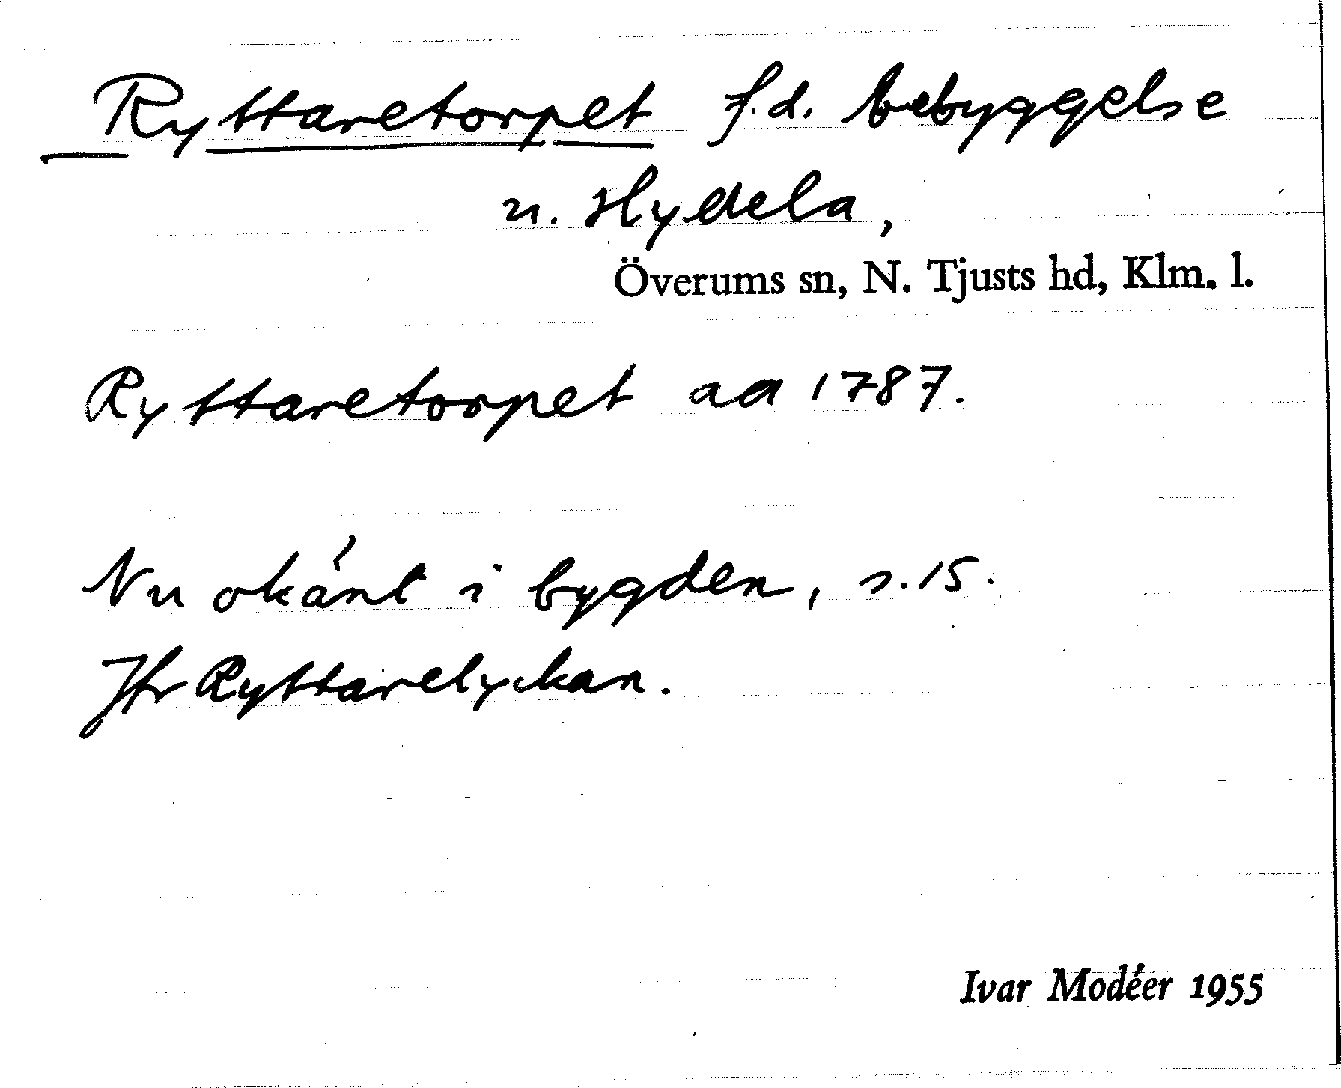 Ryttaretorpet f.d. bebyggelse
u. Hydela,
Överums sn, N. Tjusts hd, Klm. l.
Ryttaretorpet aa 1787.
Nu okänt i bygden, s. 15.
Jfr Ryttarelyckan.
Ivar Modéer 1955